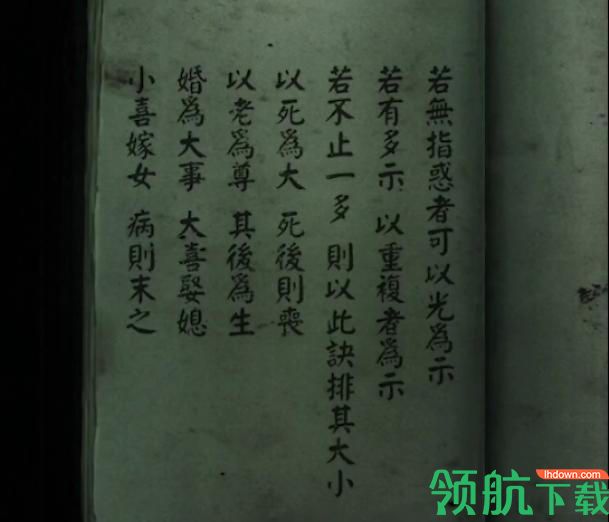 若無指惑者可以光為示
若有多示 以重複者為示
若不止一多 則以此訣排其大小
以死為大 死後則喪
以老為尊 其後為生
婚為大事 大喜娶媳
小喜嫁女 病則末之
lhdown.com
领航下载